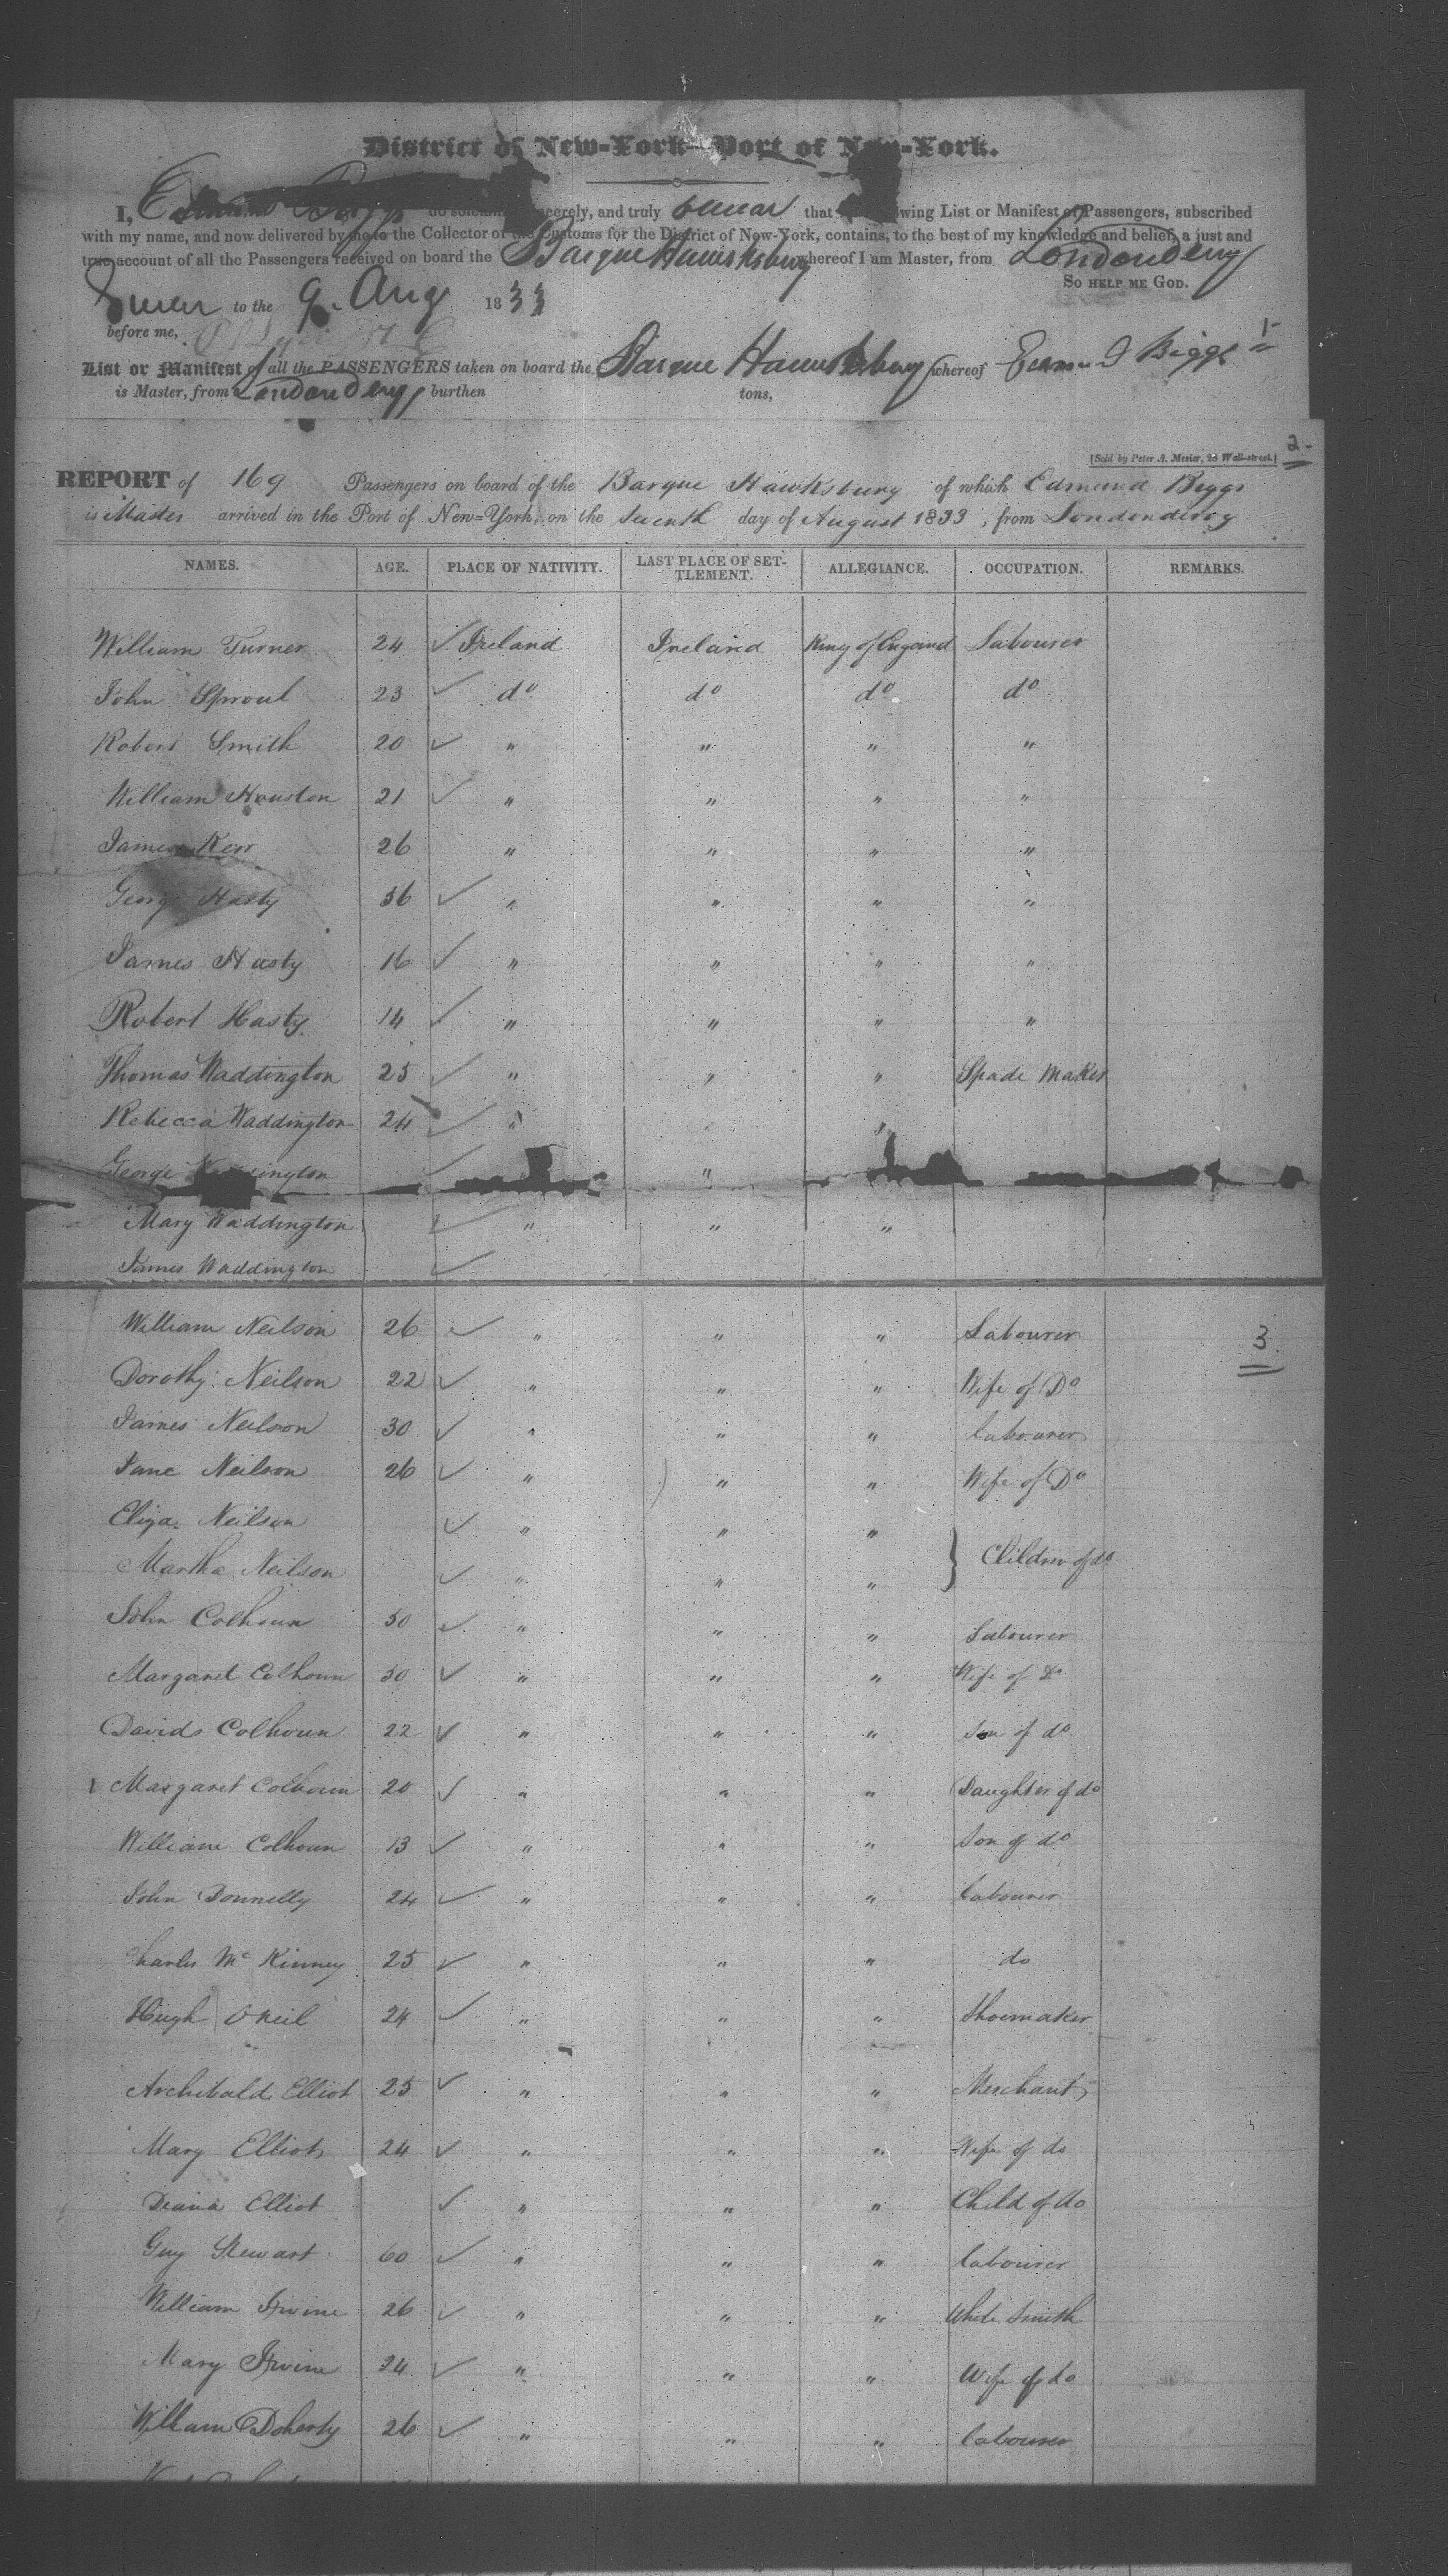 District of New-York Port of New-York.
I, Edmund Biggs do solemnly, sincerely, and truly swear that following List or Manifest of Passengers, subscribed
with my name, and now delivered by me to the Collector of the Customs for the District of New-York, contains, to the best of my knowledge and belief, a just and
true account of all the Passengers received on board the Barque Hawksbury whereof I am Master, from Londonderry
So help me God.
Sworn to the 9. Aug 1833
before me,
List or Manifest of all the PASSENGERS taken on board the Barque Hawksbury whereof Edmund Biggs
is Master, from Londonderry burthen tons,
1
[Sold by Peter A. Mesier, 28 Wall-street.]
2
REPORT of 169 Passengers on board of the Barque Hawksbury of which Edmund Biggs
is Master arrived in the Port of New=York, on the day of August 1833, from Londonderry
NAMES. AGE. PLACE OF NATIVITY. LAST PLACE OF SETTLEMENT. ALLEGIANCE. OCCUPATION. REMARKS.
William Turner 24 ✓ Ireland Ireland King of England Labourer
John Sproul 23 ✓ do do do do
Robert Smith 20 ✓ " " " "
William Houston 21 ✓ " " " "
James Kerr 26 " " " "
George Hasty 36 ✓ " " " "
James Hasty 16 ✓ " " " "
Robert Hasty 14 ✓ " " " "
Thomas Waddington 25 ✓ " " " Spade Maker
Rebecca Waddington 24 ✓ " "
George Waddington ✓ "
Mary Waddington ✓ " " "
James Waddington ✓
3
William Neilson 26 ✓ " " " Labourer
Dorothy Neilson 22 ✓ " " " Wife of Do
James Neilson 30 ✓ " " " labourer
Jane Neilson 26 ✓ " " " Wife of Do
Eliza Neilson ✓ " " "
Martha Neilson ✓ " " " } Children of do
John Colhoun 50 ✓ " " " Labourer
Margaret Colhoun 50 ✓ " " " Wife of Do
David Colhoun 22 ✓ " " " Son of do
Margaret Colhoun 20 ✓ " " " Daughter of do
William Colhoun 13 ✓ " " " Son of do
John Donnelly 24 ✓ " " " labourer
Charles Mc Kinney 25 ✓ " " " do
Hugh O Neil 24 ✓ " " " Shoemaker
Archibald Elliot 25 ✓ " " " Merchant
Mary Elliot 24 ✓ " " " Wife of do
Diana Elliot ✓ " " " Child of do
Guy Stewart 60 ✓ " " " labourer
William Irvine 26 ✓ " " " White Smith
Mary Irvine 24 ✓ " " " Wife of do
William Doherty 26 ✓ " " " labourer